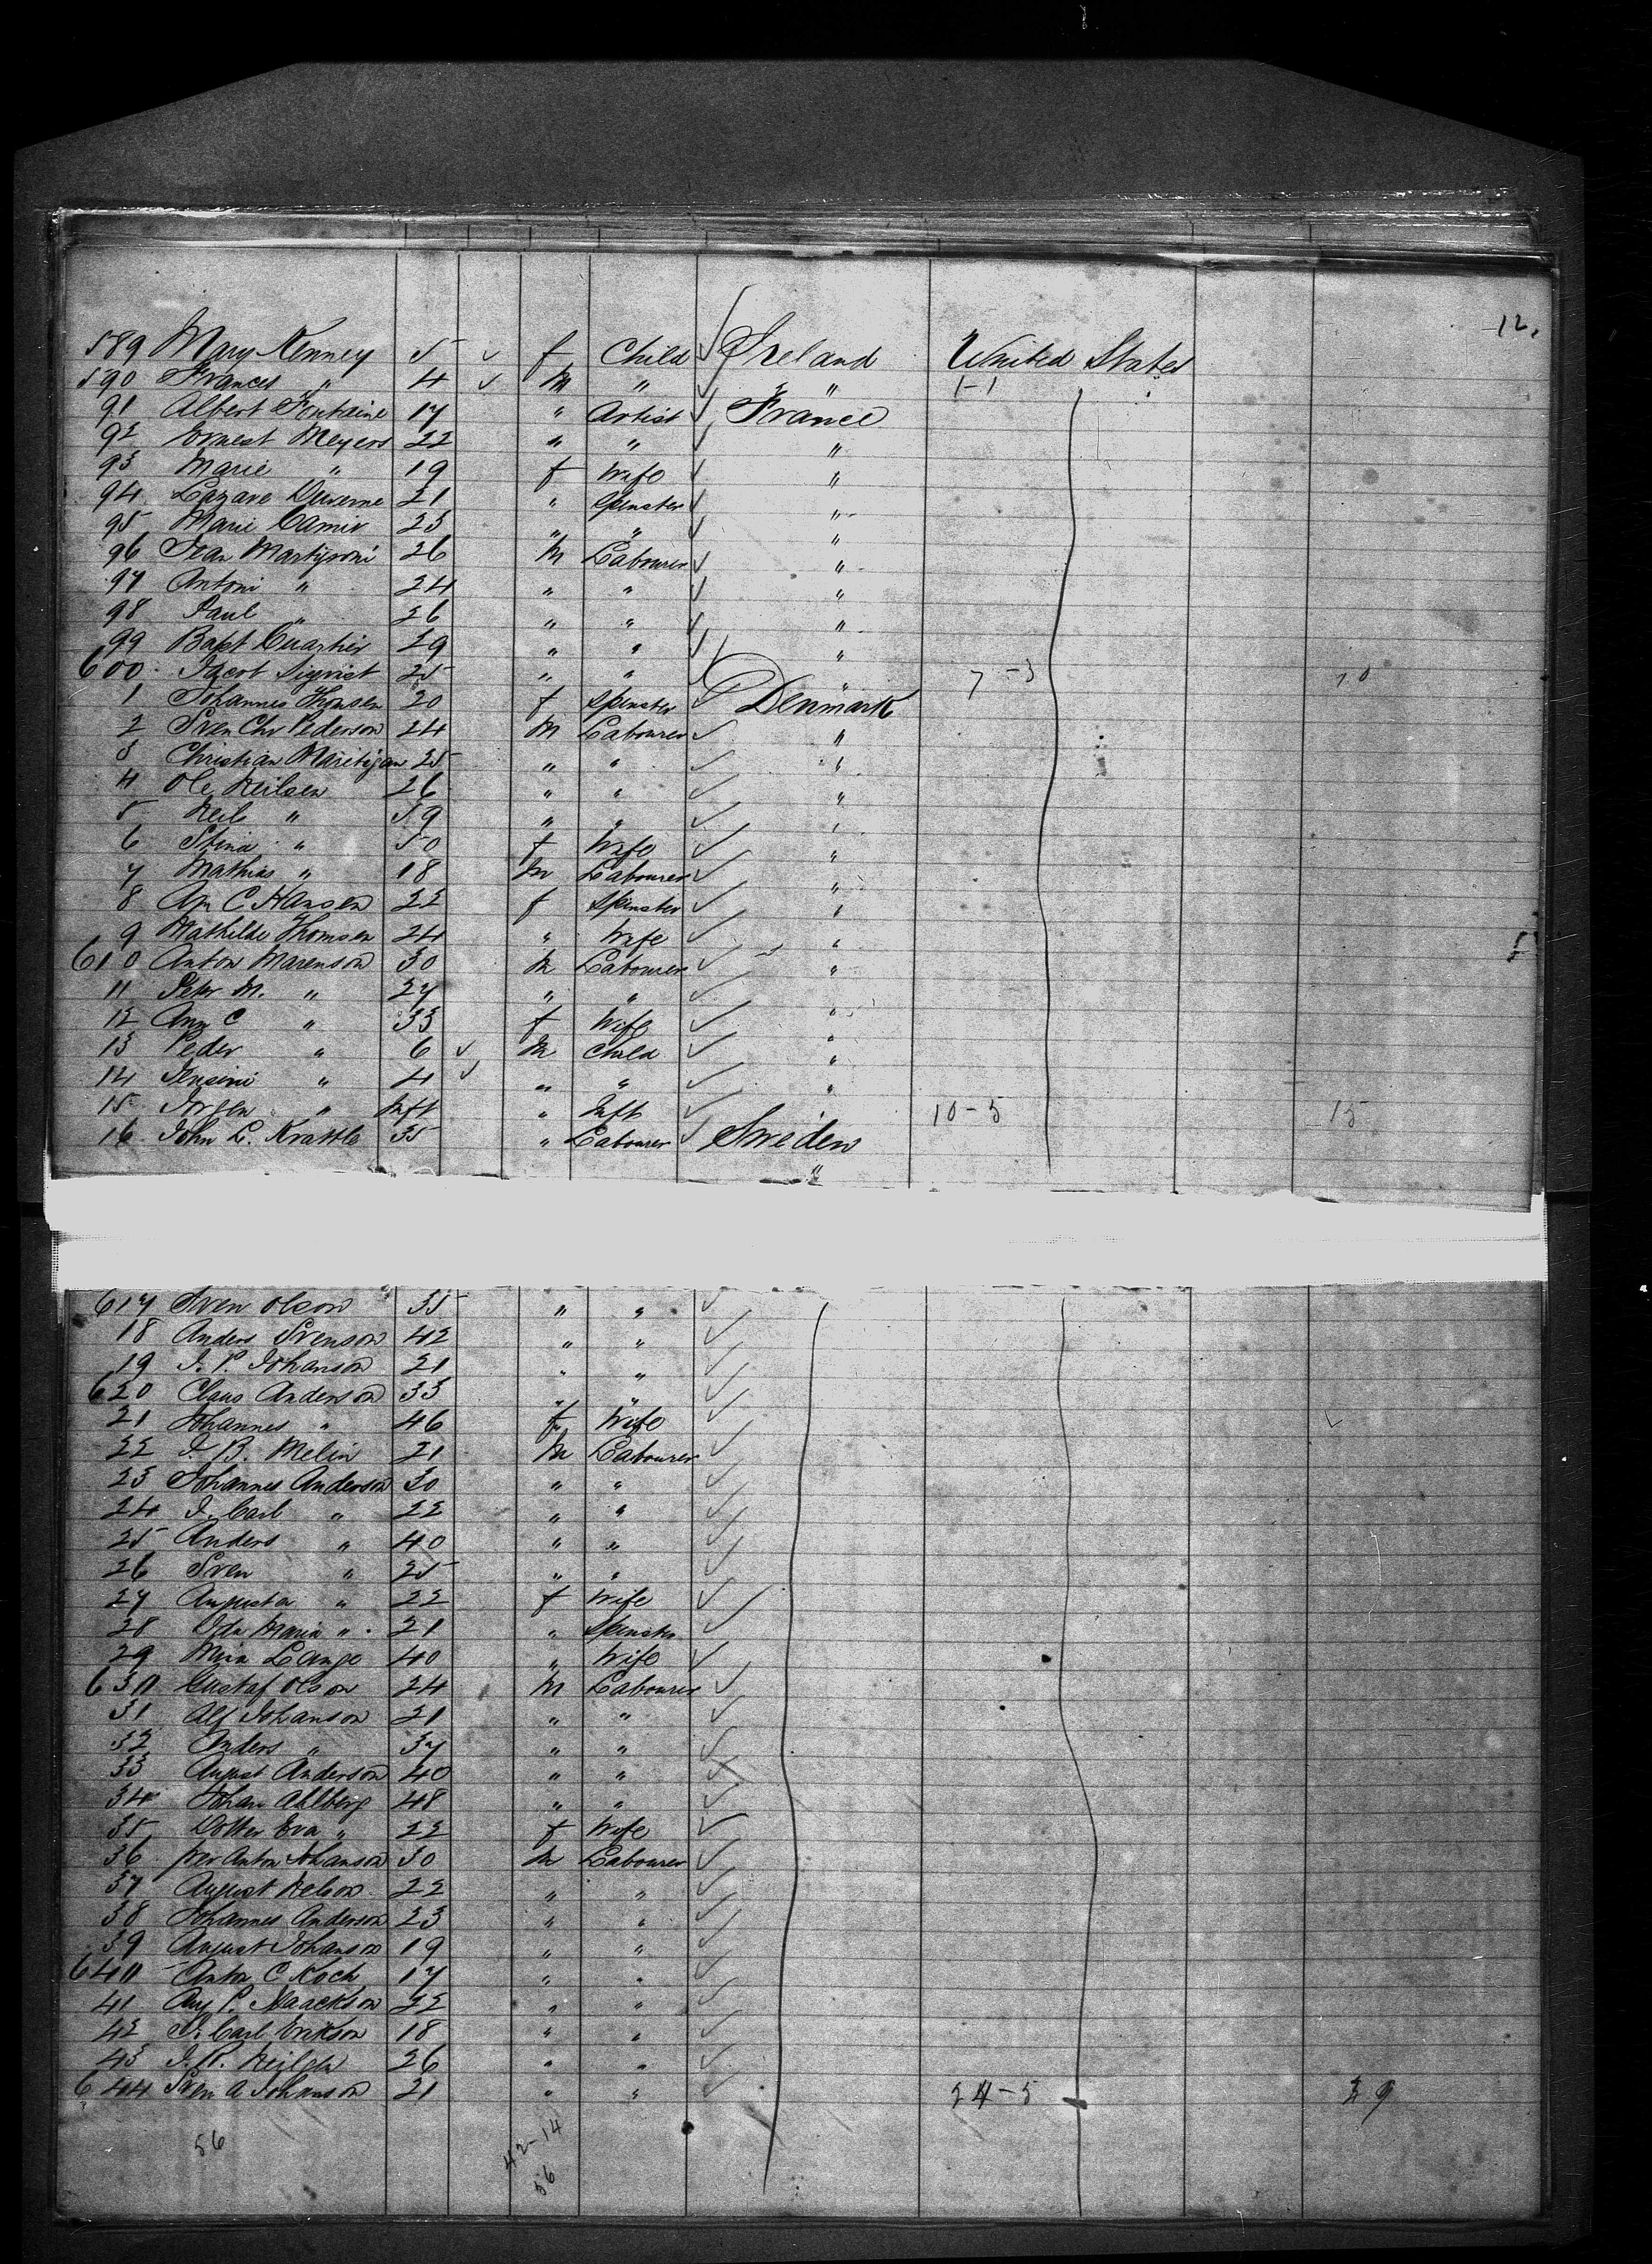 12.
589 Mary Kenney 5 ✓ f Child ✓ Ireland United States
590 Frances " 4 ✓ m " ✓ " 1-1
91 Albert Fontaine 17 " Artist ✓ France
92 Ernest Meyers 22 " " ✓ "
93 Marie " 19 f Wife ✓ "
94 Lazare Duverne 21 " Spinster ✓ "
95 Marie Camir 23 " " ✓ "
96 Jean 26 m Labourer ✓ "
97 Antoni " 24 " " ✓ "
98 Paul " 26 " " ✓ "
99 Bapt 29 " " ✓ "
600 Jacot Sigrist 25 " " ✓ " 7-3 10
1 Johannes Thomsen 20 f Spinster ✓ Denmark
2 Sven Chr Pederson 24 m Labourer ✓ "
3 Christian 25 " " ✓ "
4 Ole Neilsen 26 " " ✓ "
5 Neils " 59 " " ✓ "
6 Stina " 50 f Wife ✓ "
7 Mathias " 18 m Labourer ✓ "
8 An C. Hansen 22 f Spinster ✓ "
9 Mathilde Thomsen 24 " Wife ✓ "
610 Anton Marenson 30 m Labourer ✓ "
11 Peter M. " 27 " " ✓ "
12 Ann C " 33 f Wife ✓ "
13 Peder " 6 ✓ m Child ✓ "
14 Jensini " 4 ✓ " " ✓ "
15 Jorgen " Inft " Inft ✓ 10-5 15
16 John L. Krattle 35 " Labourer ✓ Sweden
"
617 Sven Olson 35 " " ✓
18 Anders Svenson 42 " " ✓
19 J. P. Johanson 21 " " ✓
620 Claus Anderson 33 " " ✓
21 Johannes " 46 f Wife ✓ ✓
22 J. B. Melin 21 m Labourer ✓
23 Johannes Anderson 30 " " ✓
24 J. Carl " 22 " " ✓
25 Anders " 40 " " ✓
26 Sven " 25 " " ✓
27 Augusta " 22 f Wife ✓
28 Ida Maria " 21 " Spinster ✓
29 Lange 40 " Wife ✓
630 Gustaf Olson 24 m Labourer ✓
31 Alf Johanson 21 " " ✓
32 Anders " 37 " " ✓
33 August Anderson 40 " " ✓
34 Johan Ahlberg 48 " " ✓
35 Dotter Eva " 22 f Wife ✓
36 Per Anton Johanson 30 m Labourer ✓
37 August Nelson 22 " " ✓
38 Johannes Anderson 23 " " ✓
39 August Johanson 19 " " ✓
640 Anton C Koch 17 " " ✓
41 Aug P. Isaackson 22 " " ✓
42 J. Carl Erikson 18 " " ✓
43 J. P. Neilsen 26 " " ✓
644 Sven A Johanson 21 " " ✓ 24-5 29
56 42-14
56